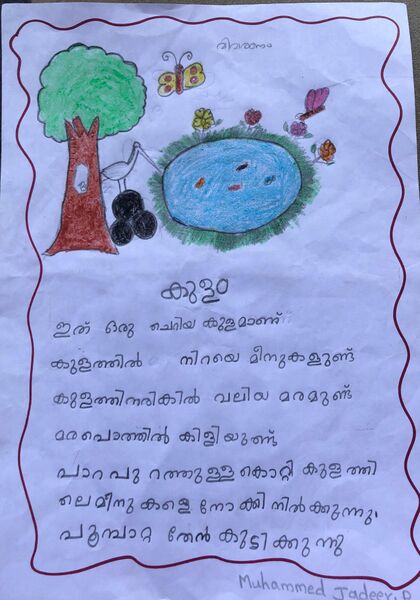 വിവരണം
കുളം
ഇത് ഒരു ചെറിയ കുളമാണ്
കുളത്തിൽ നിറയെ മീനുകളുണ്ട്
കുളത്തിനരികിൽ വലിയ മരമുണ്ട്
മരപൊത്തിൽ കിളിയുണ്ട്
പാറപുറത്തുള്ള കൊറ്റി കുളത്തി
ലെ മീനുകളെ നോക്കി നിൽക്കുന്നു.
പൂമ്പാറ്റ തേൻ കുടിക്കുന്നു
Muhammed Jadeer.P